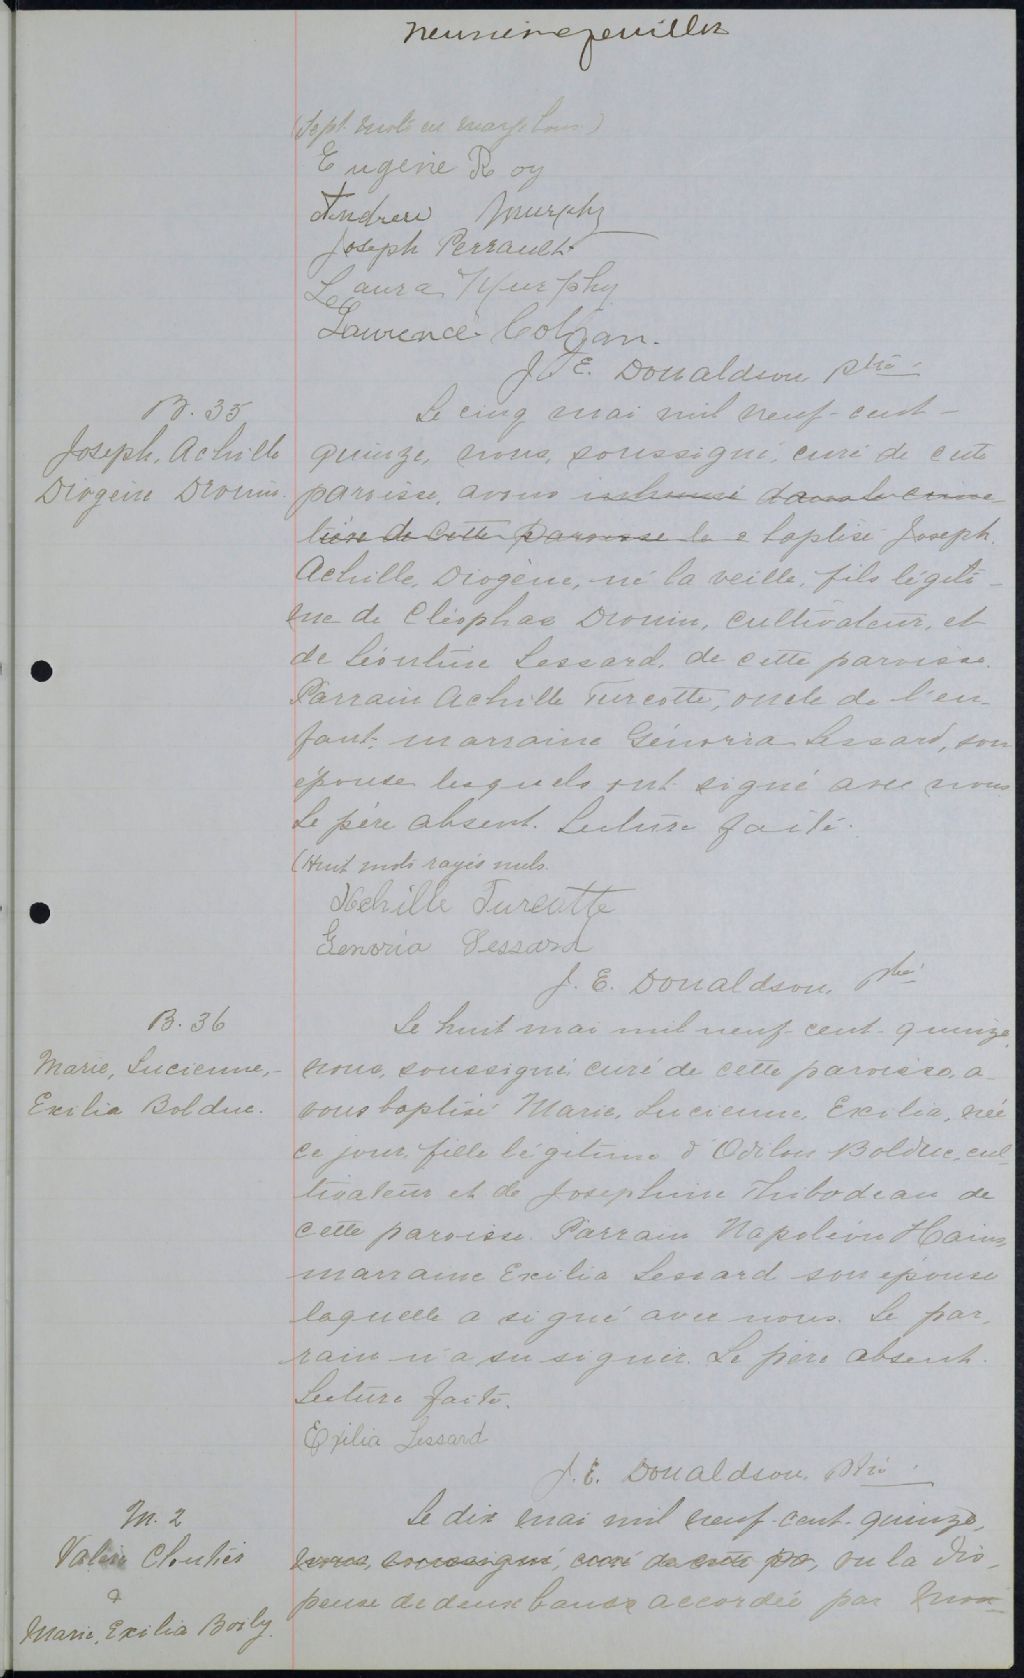 neuvième feuillet
(Sept mots en marge bons)
Eugénie Roy
Andrew Murphy
Joseph Perrault
Laura Murphy
Lawrence Colgan.
J. E. Donaldson ptre
B. 35
Joseph, Achille
Diogène Drouin.
Le cinq mai mil neuf-cent-
quinze, nous, soussigné, curé de cette
paroisse, avons inhumé dans le cime-
tière de cette paroisse le e baptisé Joseph
Achille, Diogène, né la veille, fils légiti-
me de Cléophas Drouin, cultivateur, et
de Léontine Lessard, de cette paroisse.
Parrain Achille Turcotte, oncle de l'en-
fant; marraine Génoria Lessard, son
épouse lesquels ont signé avec nous
Le père absent. Lecture faite.
(Huit mots rayés nuls.
Achille Turcotte
Genoria Lessard
J. E. Donaldson, ptre
B. 36
Marie, Lucienne,-
Exilia Bolduc.
Le huit mai mil neuf-cent-quinze,
nous, soussigné, curé de cette paroisse, a-
vons baptisé Marie, Lucienne, Exilia, née
ce jour, fille légitime d'Odilon Bolduc, cul-
tivateur et de Josephine Thibodeau de
cette paroisse. Parrain Napoléon Hains,
marraine Exilia Lessard son épouse
laquelle a signé avec nous. Le par-
rain n'a su signer. Le père absent.
Lecture faite.
Exilia Lessard
J. E. Donaldson, ptre
M. 2
Valère Cloutier
&
Marie, Exilia Boily.
Le dix mai mil neuf-cent-quinze,
nous, soussigné, curé de cette pa, vu la dis-
pense de deux bans accordée par Mon-